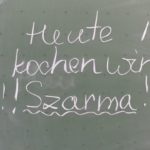 Heute !
kochen wir
!! Szarma !